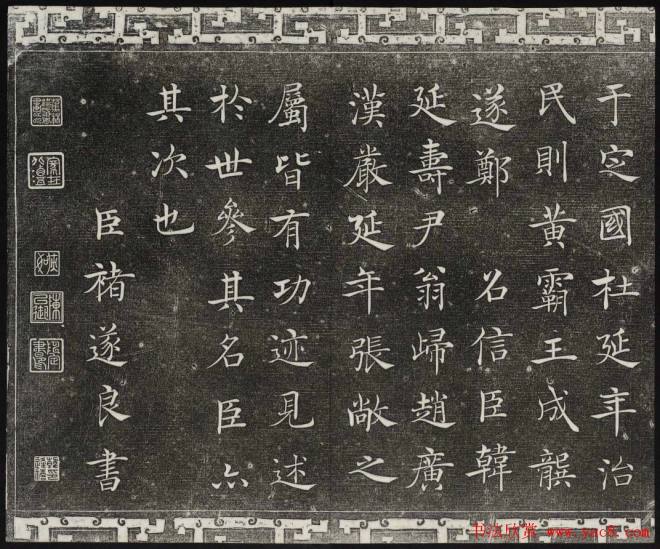 于定國杜延年治
民則黃霸王成龔
遂鄭 名信臣韓
延壽尹翁歸趙廣
漢嚴延年張敞之
屬皆有功迹見述
於世參其名臣亦
其次也
臣褚遂良書
书法欣赏 www.yac8.com